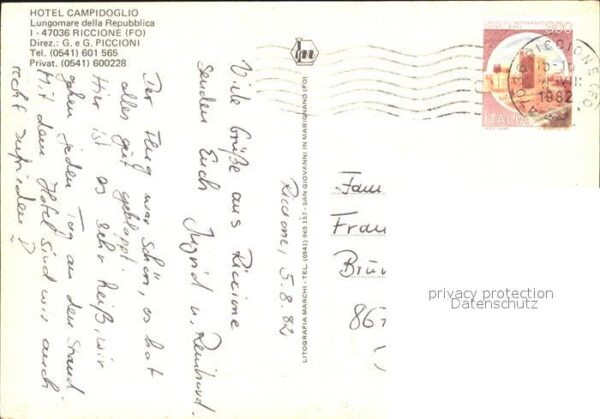 HOTEL CAMPIDOGLIO
Lungomare della Repubblica
I - 47036 RICCIONE (FO)
Direz.: G. e G. PICCIONI
Tel. (0541) 601 565
Privat. (0541) 600228
Riccione, 5.8.82
Viele Grüße aus Riccione
senden Euch Ingrid u. Reinhard.
Der Flug war schön, es hat
alles gut geklappt.
Hier ist es sehr heiß, wir
gehen jeden Tag an den Strand.
Mit dem Hotel sind wir auch
recht zufrieden.
LITOGRAFIA MARCHI - TEL. (0541) 965.157 - SAN GIOVANNI IN MARIGNANO (FO)
lm
300
ITALIA
RICCIONE (FO)
1982
Fam
Fran
Brun
867
privacy protection
Datenschutz